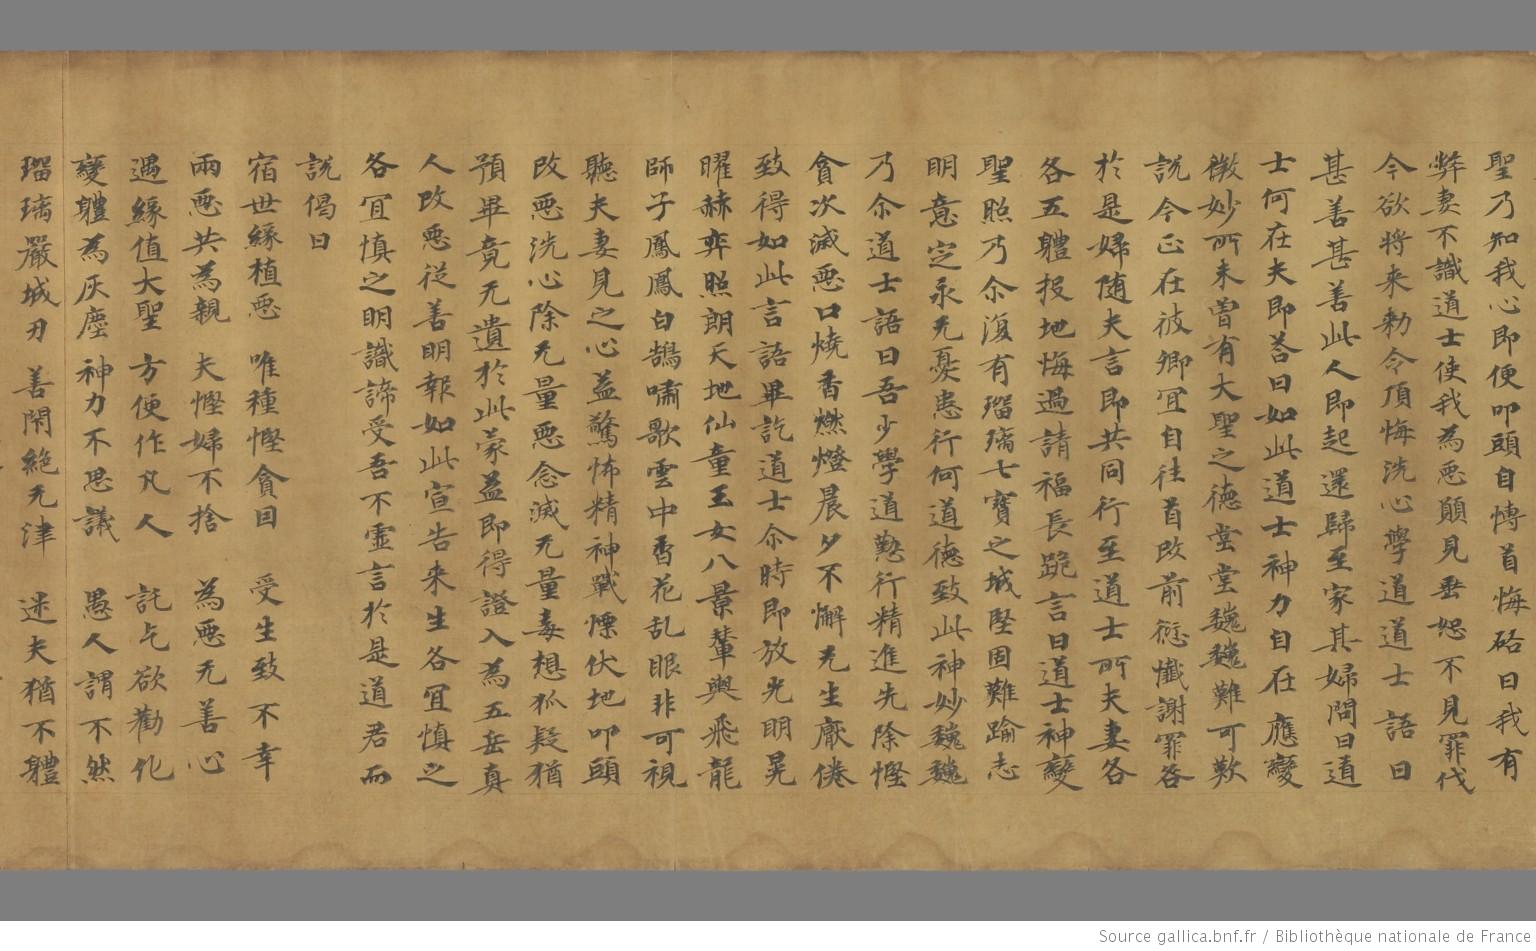 聖乃知我心即便叩頭自慱首悔硌曰我有
弊妻不識道士使我為惡願見垂恕不見罪代
今欲將来勑令頂悔洗心學道道士語曰
甚善甚善此人即起還歸至家其婦問曰道
士何在夫即荅曰如此道士神力自在應變
微妙所未曽有大聖之德堂堂巍巍難可歎
說今正在彼卿冝自往首改前愆懺謝罪咎
於是婦随夫言即共同行至道士所夫妻各
各五體投地悔過請福長跪言曰道士神變
聖照乃尒復有瑠璃七寶之城堅固難踰志
明意定永无憂患行何道德致此神妙巍巍
乃尒道士語曰吾少學道懃行精進先除慳
貪次滅惡口燒香燃燈晨夕不懈先生厭倦
致得如此言語畢訖道士尒時即放光明晃
曜赫弈照朗天地仙童玉女八景輦輿飛龍
師子鳳鳳白鵠嘯歌雲中香花乱眼非可視
聽夫妻見之心益驚怖精神戰慄伏地叩頭
改惡洗心除无量惡念滅无量毒想狐疑猶
預畢竟无遺於此蒙益即得證入為五岳真
人改惡従善明報如此宣告来生各冝慎之
各冝慎之明識諦受吾不虛言於是道君而
說偈曰
宿世緣植惡 唯種慳貪因 受生致不幸
兩惡共為親 夫慳婦不捨 為惡无善心
遇緣值大聖 方便作凡人 託乞欲勸化
變體為灰塵 神力不思議 愚人謂不然
瑠璃嚴城刃 善閇絕无津 迷夫猶不體
Source gallica.bnf.fr / Bibliothèque nationale de France